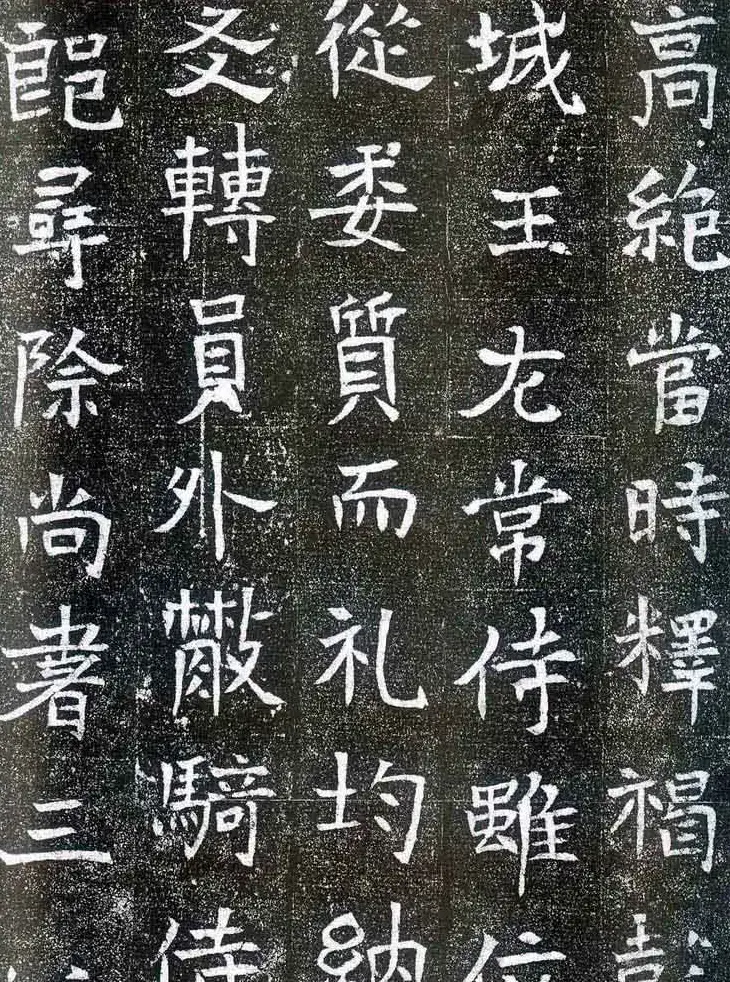 高絶當時釋褐彭
城王左常侍雖位
從委質而礼均納
友轉員外散騎侍
郎尋除尚書三